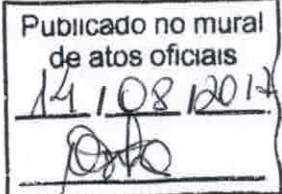 Publicado no mural
de atos oficiais
14/08/2017